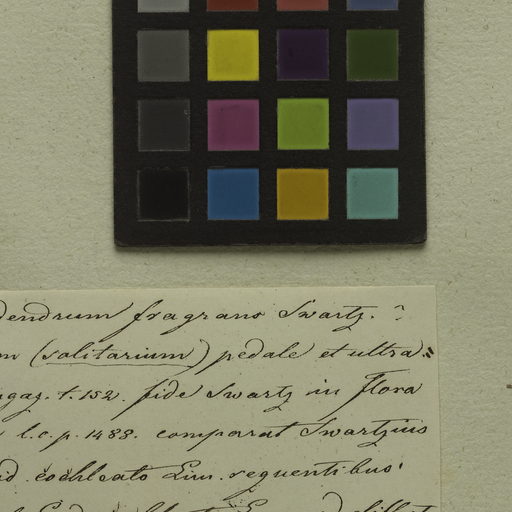 dendrum fragrans Swartz. ?
m (solitarium) pedale et ultra.
gag. t. 152. fide Swartz in Flora
l.c.p. 1488. comparat Swartzius
id. cochleato Lin. sequentibus